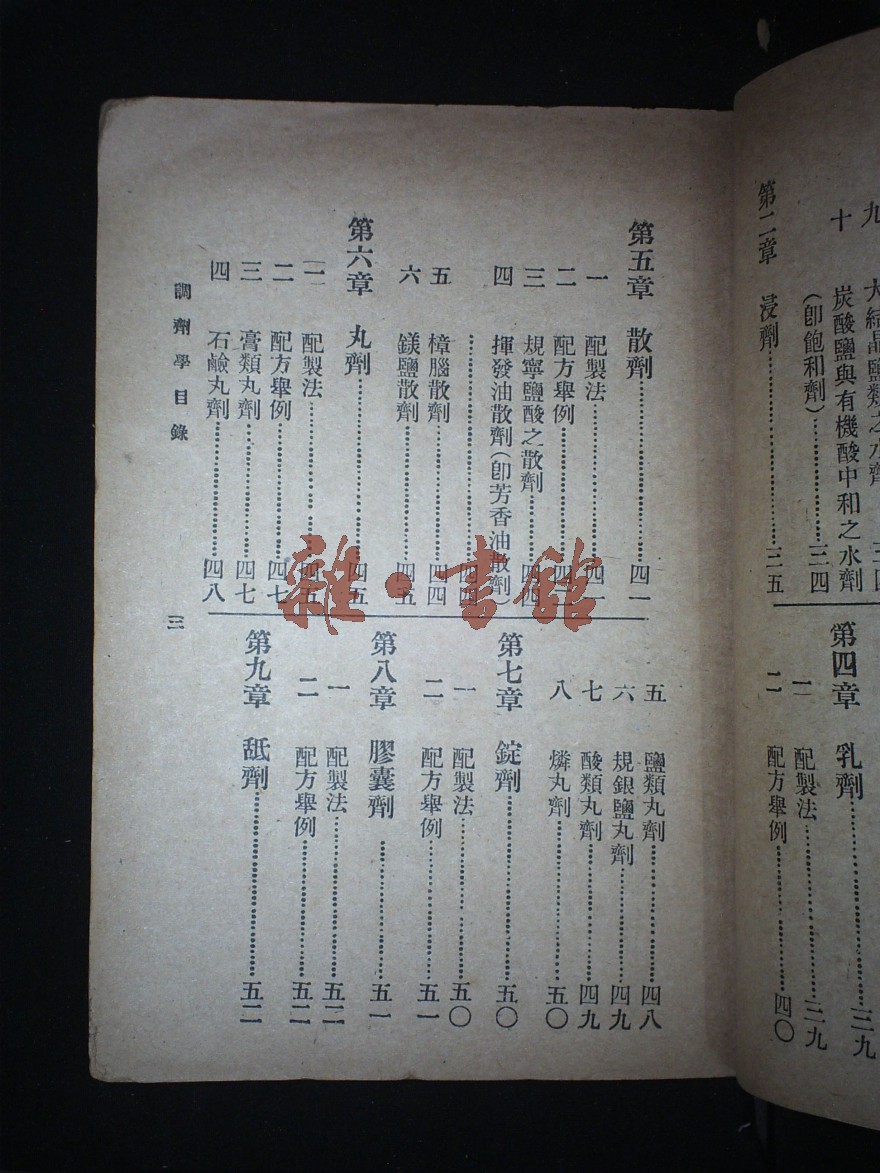 九 大結晶鹽類之水劑……三四
十 炭酸鹽與有機酸中和之水劑
(卽飽和劑)……三四
第二章 浸劑……三五
第四章 乳劑……三九
一 配製法……三九
二 配方舉例……四〇
第五章 散劑……四一
一 配製法……四一
二 配方舉例……
三 規寧鹽酸之散劑……四四
四 揮發油散劑(卽芳香油散劑)
……四四
五 樟腦散劑……四四
六 鎂鹽散劑……四五
第六章 丸劑……四五
一 配製法……四五
二 配方舉例……四七
三 膏類丸劑……四七
四 石鹼丸劑……四八
五 鹽類丸劑……四八
六 規銀鹽丸劑……四九
七 酸類丸劑……四九
八 燐丸劑……五〇
第七章 錠劑……五〇
一 配製法……五〇
二 配方舉例……五一
第八章 膠囊劑……五一
一 配製法……五二
二 配方舉例……五二
第九章 舐劑……五二
調劑學目錄 三
雜·書館